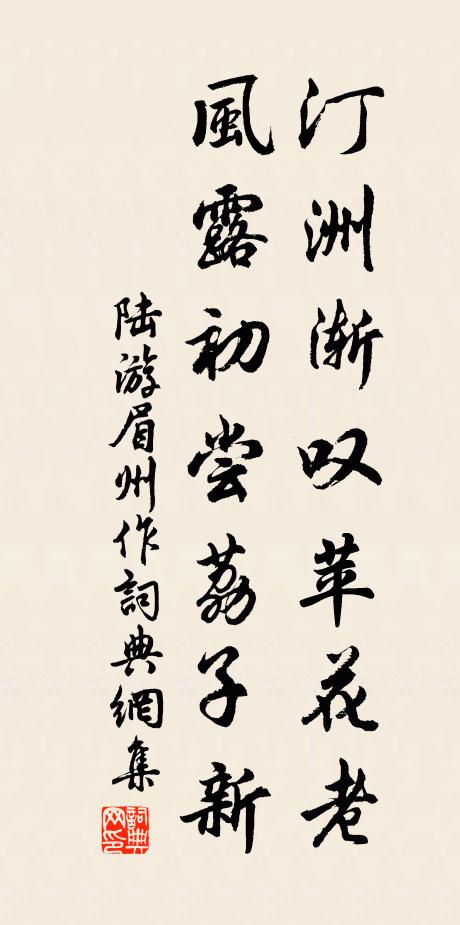 汀洲渐叹苹花老
風露初尝荔子新
陆游眉州作詞典網集
詞典网印